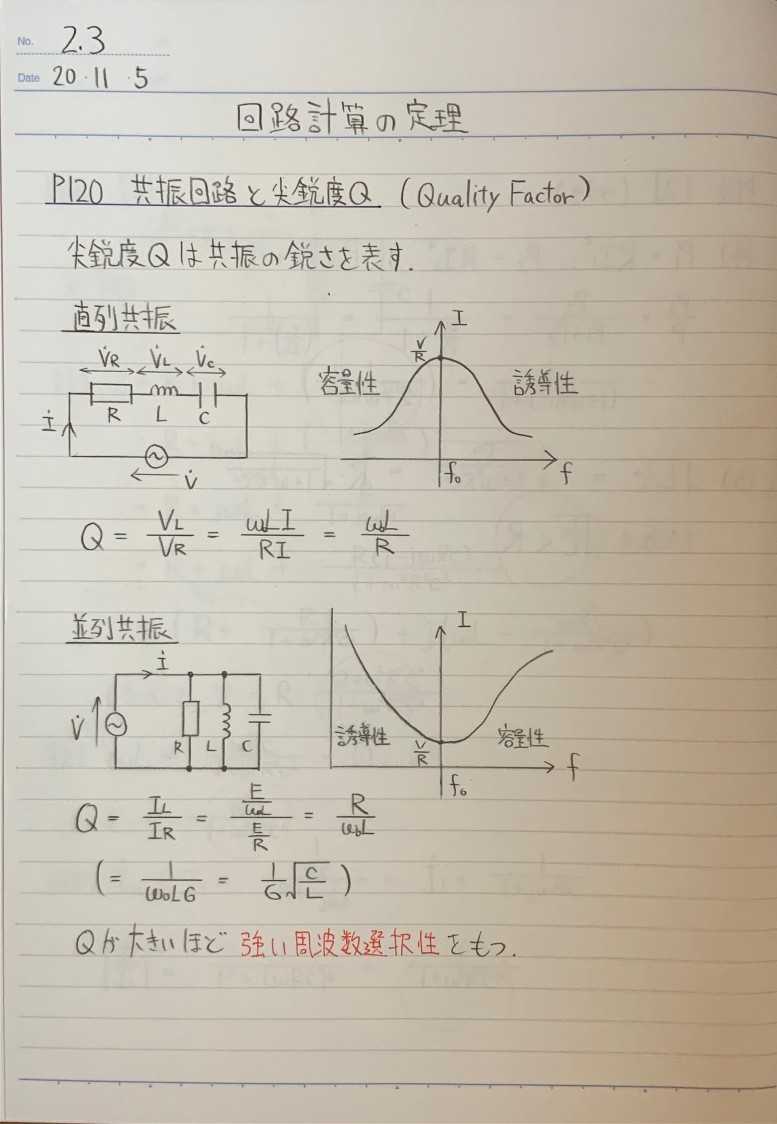 No. 2.3
Date 20・11・5
回路計算の定理
P120 共振回路と尖鋭度Q (Quality Factor)
尖鋭度Qは共振の鋭さを表す.
直列共振
V̇R V̇L V̇c
R L C
İ
V̇
I
V/R
容量性 誘導性
f₀ f
Q = VL/VR = ωLI/RI = ωL/R
並列共振
İ
V̇
R L C
I
誘導性 V/R 容量性
f₀ f
Q = IL/IR = (E/ω₀L)/(E/R) = R/ω₀L
(= 1/ω₀LG = 1/G √(C/L) )
Qが大きいほど 強い周波数選択性をもつ.